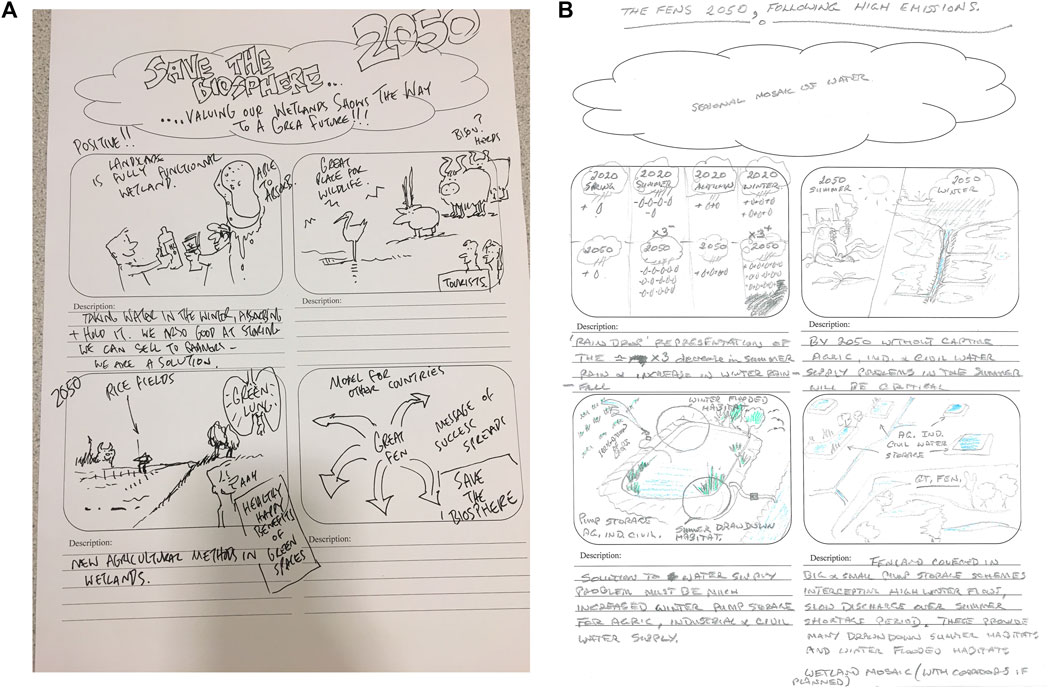 A
2050
SAVE THE
BIOSPHERE...
....VALUING OUR WETLANDS SHOWS THE WAY
TO A GREA FUTURE!!!
POSITIVE!!
LANDSCAPE
IS FULLY FUNCTIONAL
WETLAND.
ABLE
TO
ABSORB.
GREAT
PLACE FOR
WILDLIFE.
BISON?
HERDS
TOURISTS
Description:
TAKING WATER IN THE WINTER, ABSORBING
+ HOLD IT. WE ALSO GOOD AT STORING
WE CAN SELL TO FARMERS -
WE ARE A SOLUTION.
Description:
2050
RICE FIELDS
GREEN
LUNG
AAH
HEALTHY
HAPPY
BENEFITS
OF
GREEN
SPACES
MODEL FOR
OTHER COUNTRIES
GREAT
FEN
MESSAGE OF
SUCCESS
SPREADS
SAVE
THE
BIOSPHERE
Description:
NEW AGRICULTURAL METHODS IN
WETLANDS.
Description:
B
THE FENS 2050, FOLLOWING HIGH EMISSIONS.
SEASONAL MOSAIC OF WATER
2020
SPRING
2020
SUMMER
2020
AUTUMN
2020
WINTER
2050
×3-
2050
2050
×3+
2050
2050
SUMMER
2050
WINTER
Description:
'RAIN DROP' REPRESENTATION OF
THE ×3 decrease in SUMMER
RAIN & INCREASE IN WINTER RAIN-
- FALL
Description:
BY 2050 WITHOUT CAPTURE
AGRIC, IND. & CIVIL WATER
SUPPLY PROBLEMS IN THE SUMMER
WILL BE CRITICAL
WINTER FLOODED
HABITAT.
PUMP STORAGE
AG. IND. CIVIL.
SUMMER DRAWDOWN
HABITAT.
AG. IND.
CIVIL WATER
STORAGE
GT. FEN.
Description:
SOLUTION TO WATER SUPPLY
PROBLEM MUST BE MUCH
INCREASED WINTER PUMP STORAGE
FOR AGRIC, INDUSTRIAL & CIVIL
WATER SUPPLY.
Description:
FENLAND COVERED IN
BIG & SMALL PUMP STORAGE SCHEMES
INTERCEPTING HIGH WINTER FLOW,
SLOW DISCHARGE OVER SUMMER
SHORTAGE PERIOD. THESE PROVIDE
MANY DRAWDOWN SUMMER HABITATS
AND WINTER FLOODED HABITATS
WETLAND MOSAIC (WITH CORRIDORS IF
PLANNED)